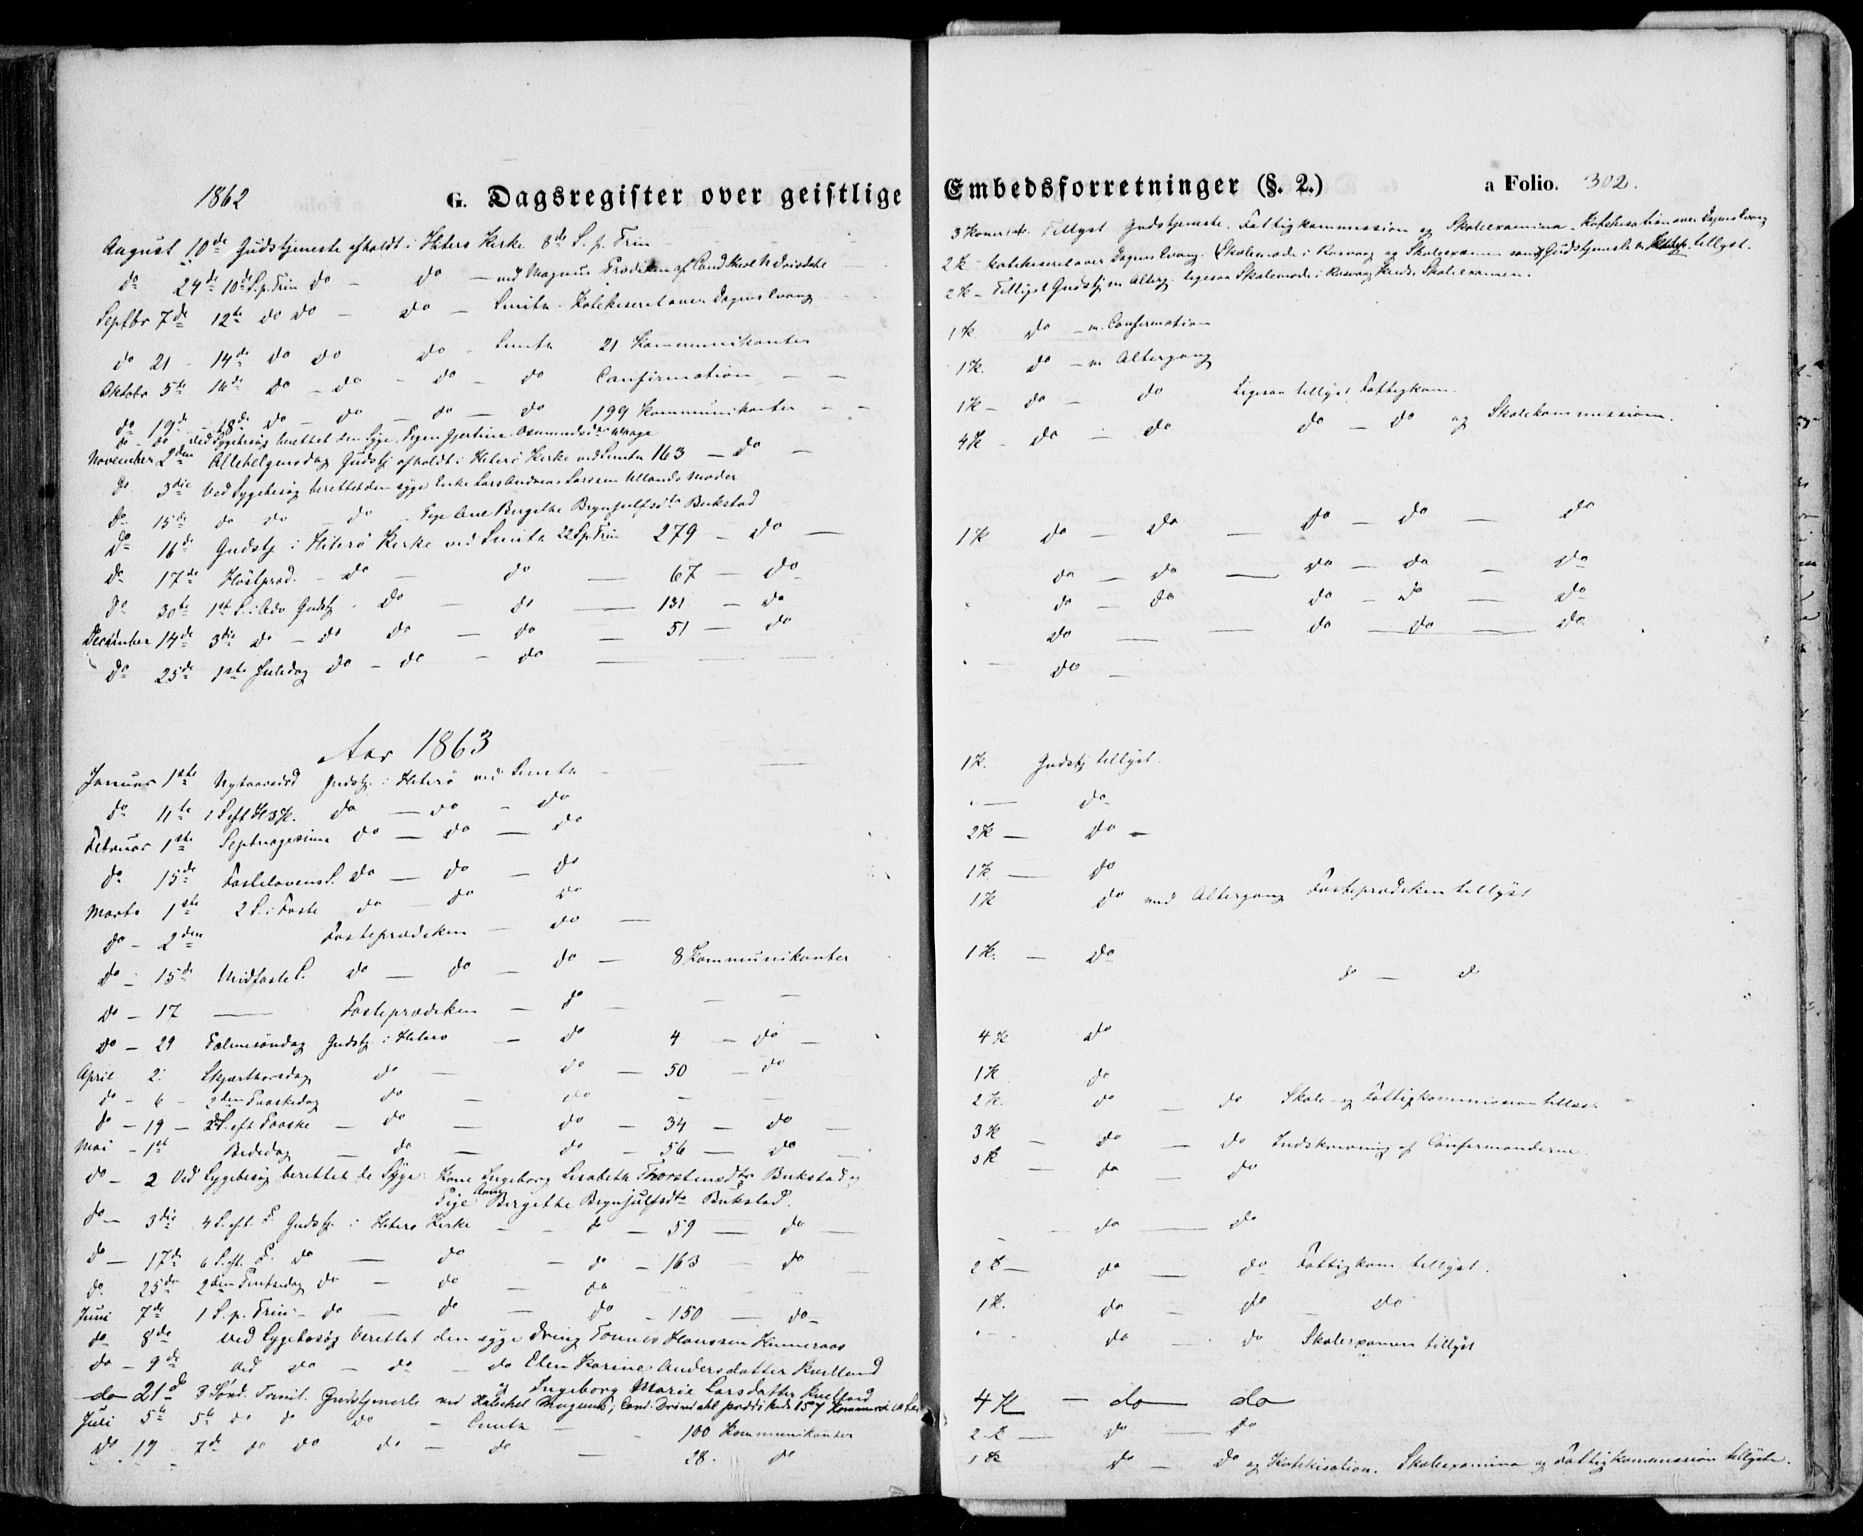 1862 G. Dagsregister over geistlige
August 10de Gudstjeneste afholdt i Hiterø Kirke 8de S. p. Trin
do 24de 10de S. p. Trin do - do - ved Magnus Prædiken af Cand theol
Septbr 7de 12te do do - do - Smith. Katekiseret over Dagens Evang
do 21 - 14de do do do - Smith 21 Kommunikanter
Oktobr 5te 16de do - do - do - do Confirmation - -
do 19de - 18de do - do - do - do 199 Kommunikanter - -
do - do ved Sygebesøg berettet den Syge, Pigen Gjertine Osmundsdr
November 2den Allehelgensdag Gudstj afholdt i Hiterø Kirke ved Smith 163 - do -
do 3die Ved Sygebesøg berettet den syge Enke Lars Andreas Larssen Ullands Moder
do 15de do do - do - Pige Ane Birgithe Brynjulfsdtr Bukstad
do 16de Gudstj i Hiterø Kirke ved Smith 22 S p Trin 279 - do -
do 17de Høstpræd. - do - do - 67 - do
do 30te 1ste S. i Adv Gudstj - do - do - 131 - do
December 14de 3die do - do do - do - 51 - do
do 25de 1ste Juledag do - do - do -
Aar 1863
Januar 1ste Nytaarsdag Gudstj. i Hiterø ved Smith
do 11te 1 S eft H3K. do - do - do
Februar 1ste Septuagesima do - do - do
do 15de Fastelavens S. do - do - do
Marts 1ste 2 S. i Faste do - do do
do - 2den Fasteprædiken - do -
do - 15de Midfaste S. do - do - do - 8 Kommunikanter
do - 17 - Fasteprædiken - do - - -
do - 29 Palmesøndag Gudstj i Hiterø - do 4 - do -
April 2 Skjærthorsdag do - do - 50 - do
do - 6 - 2den Paaskedag do - do - -
do - 19 - 2 S. eft Paaske - do - do - 34 - do -
Mai - 1st Bededag - do - do - 56 - do -
do - 2 Ved Sygebesøg berettet de Syge: Kone Ingeborg Lisabeth Thorstensdtr Bukstad og
Pige Anne Birgithe Brynjulfsdtr Bukstad.
do - 3die 4 S. eft. P. Gudstj. i Hiterø Kirke - - do - 59 - do -
do - 17de 6 S. eft. P. do - do - do - 163 - do
do 25de 2den Pintsedag do - do - do
Juni 7de 1 S. p. Trin - do - do - do - 150 - do -
do 8de Ved Sygebesøg berettet den syge Dreng Tønnes Hanssen
do - 9de Ved do - do - do Elen Karine Andersdatter
og Ingeborg Marie Larsdatter
do 21de 3 Sønd. Trinit. Gudstjeneste ved Magnus, Cand. prædikede 157 Kommunikanter
Juli 5te 5te do do do - Smith - - 100 Kommunikanter
do. 19 - 7de do do do - do - 28. do
Embedsforretninger (§. 2.) a Folio. 302.
3 Koner Tillyst Gudstjeneste, Fattigkommission og Skoleexamina. Katekisation over Dagens Evang
2 K - katekiseret over Dagens Evang. Skolemøde i Rasvaag og Skoleexamen samt Gudstjeneste m tillyst.
2 K - Tillyst Gudstj m Alterg. ligesaa Skolemøde i Rasvaag Kreds, Skoleexamen.
1 K do - m. Confirmation
1 K. do - m Altergang
1 K - do - do Ligesaa tillyst Fattigkom.
4 K - do - do do - do og Skolekommission.
1 K do - do - do - do - do
do - do - do - do - do
do - do do - do - do
do - - do - do - do
- do -
1 K. Gudstj tillyst.
- do
2 K - do -
1 K - do
1 K do med Altergang Fasteprædiken tillyst
1 K. - do
do - do
4 K do
1 K do
2 K. do - do Skole- og Fattigkommission
3 K - do - do Indskrivning af Confirmanderne.
3 K - do - do
- do - do
2 K - do - do Fattigkom. tillyst.
1 K. do - do - do
- do - do Skoleexamen tillyst
4 K - do do
2 K - do - do
1 K do - do og Katekisation. Skoleexamina og Fattigkommission tillyste.